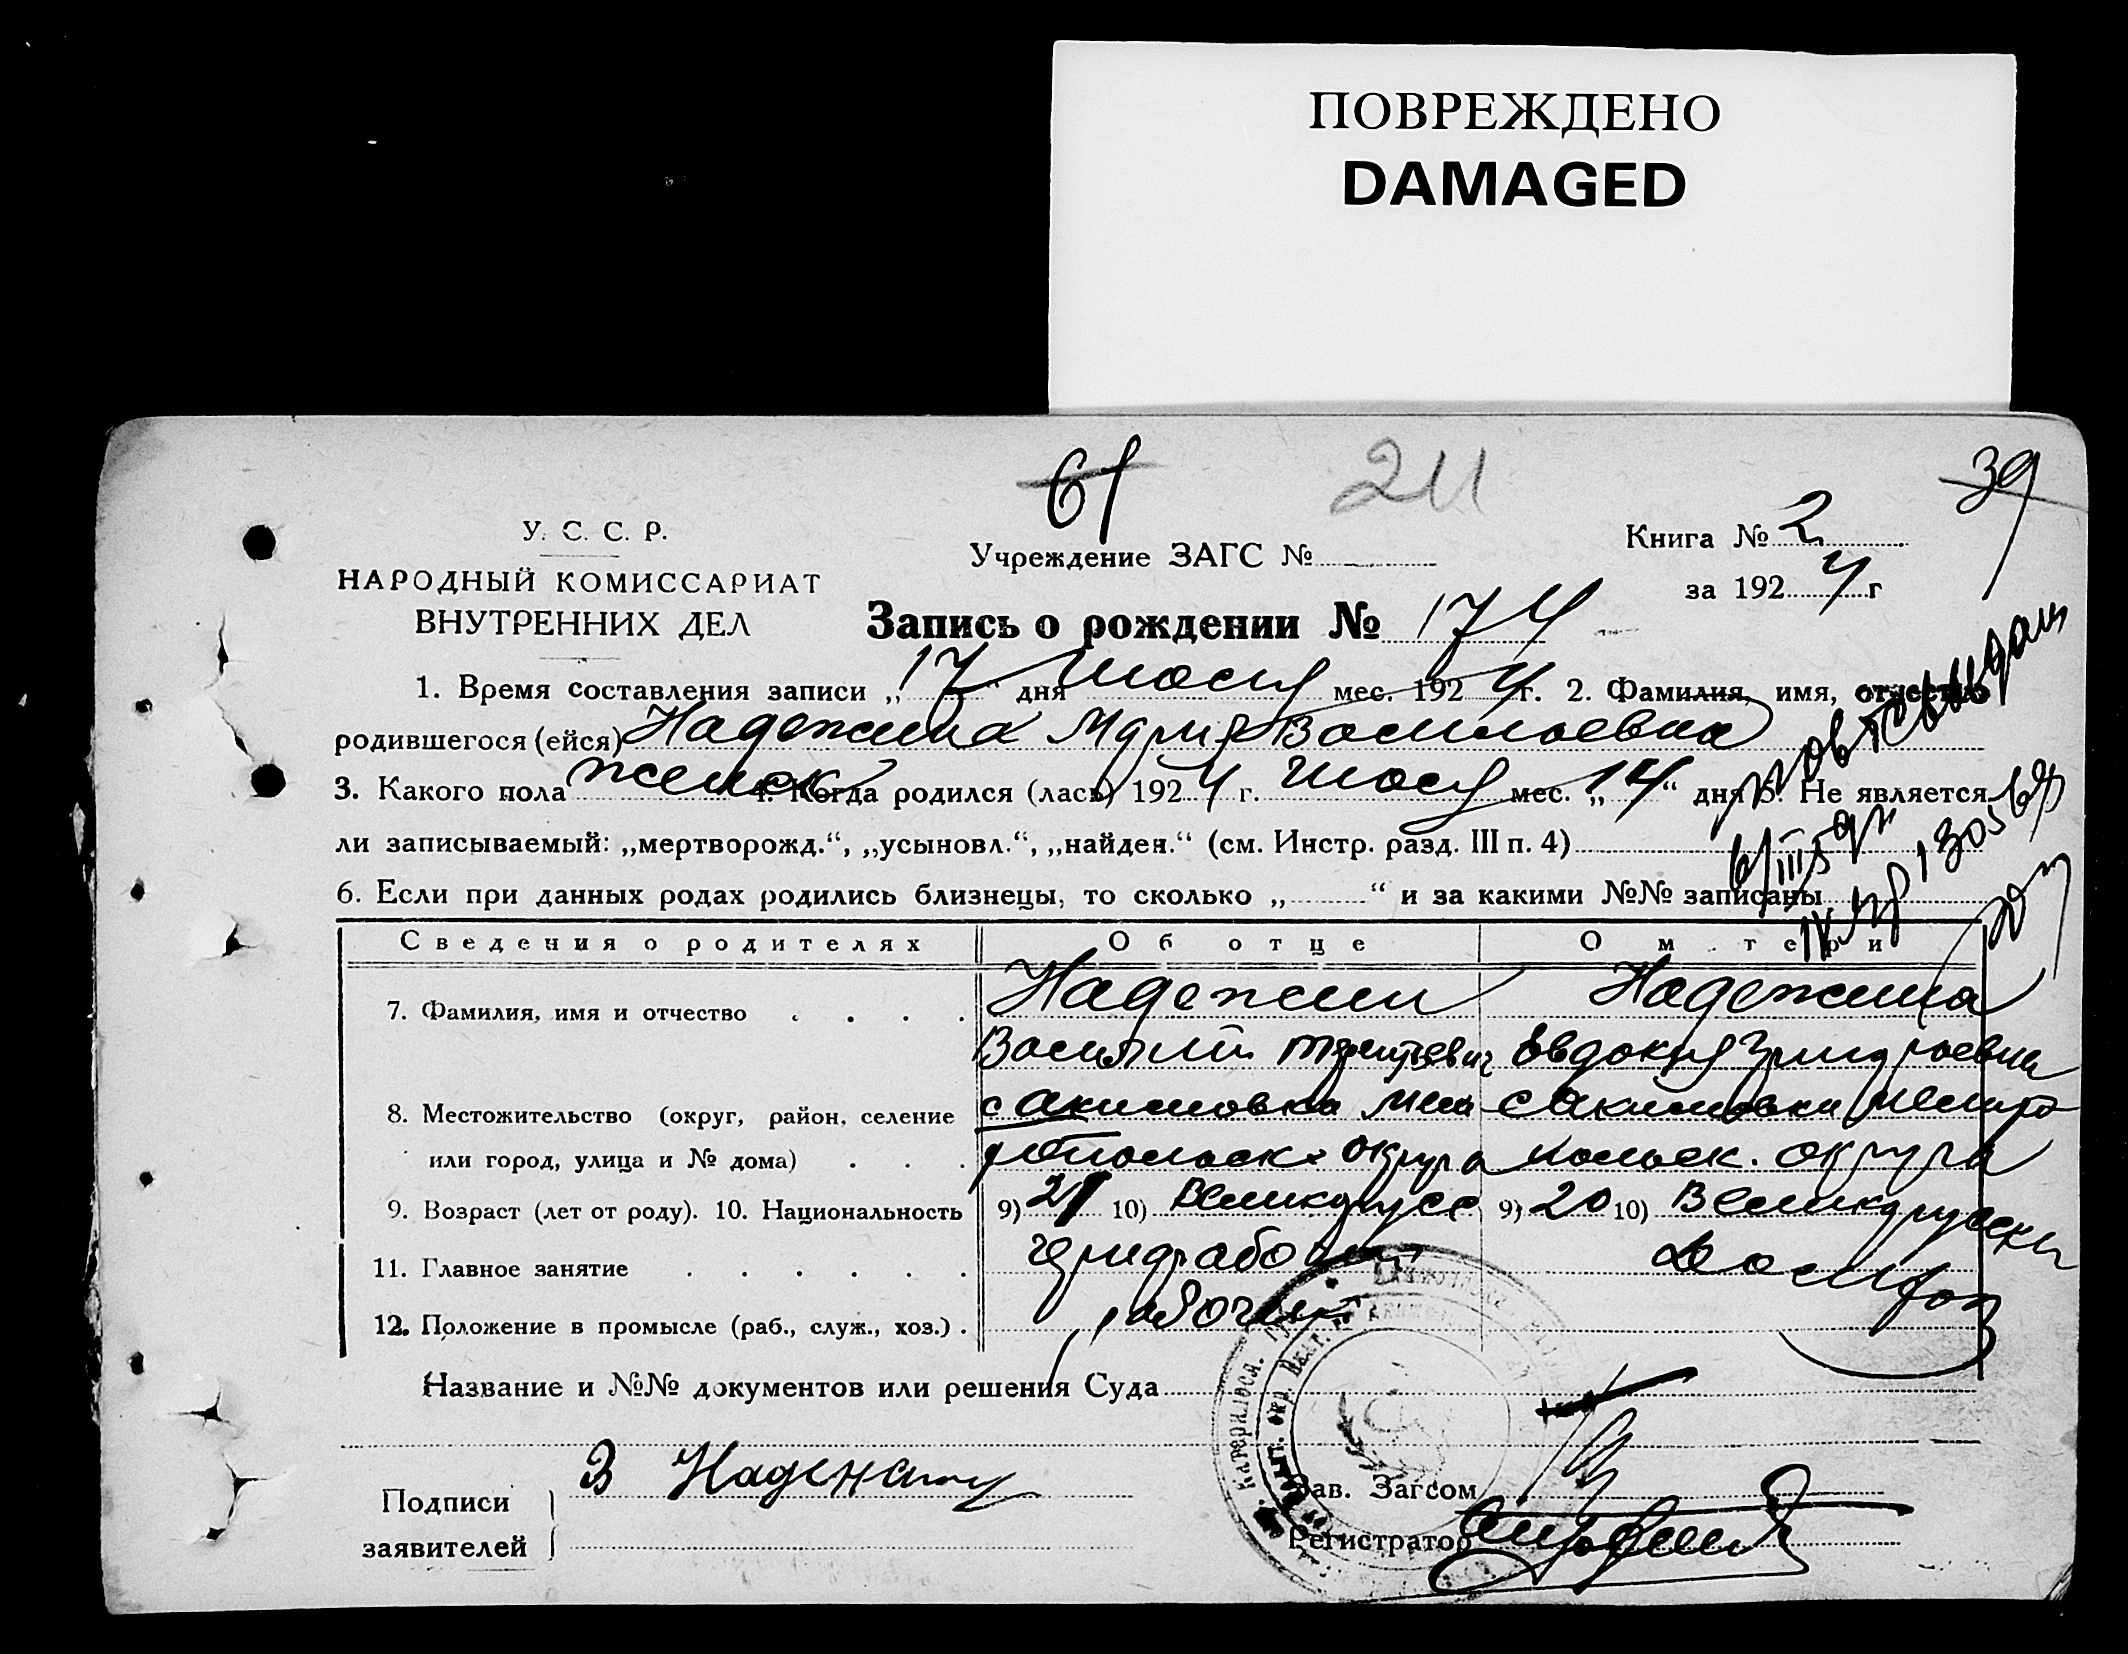 ПОВРЕЖДЕНО
DAMAGED
61 211 39
У. С. С. Р.
НАРОДНЫЙ КОМИССАРИАТ
ВНУТРЕННИХ ДЕЛ
Учреждение ЗАГС №
Книга № 2
за 1924 г
Запись о рождении № 174
1. Время составления записи „17“ дня июля мес. 1924 г. 2. Фамилия, имя, отчество
родившегося (ейся) Надежина Мария Васильевна
3. Какого пола женск 4. Когда родился (лась) 1924 г. июля мес. „14“ дня 5. Не является
ли записываемый: „мертворожд.“, „усыновл.“, „найден.“ (см. Инстр. разд. III п. 4)
6. Если при данных родах родились близнецы, то сколько „ “ и за какими №№ записаны
Сведения о родителях Об отце О матери
7. Фамилия, имя и отчество Надежин Надежина
Василий Терентьевич Евдокия
8. Местожительство (округ, район, селение с Акимовка Мели с Акимовки Мелито
или город, улица и № дома) топольск. округа польск. округа
9. Возраст (лет от роду). 10. Национальность 9) 21 10) Великорусс 9) 20 10) Великорусска
11. Главное занятие Домхоз
12. Положение в промысле (раб., служ., хоз.) рабочий
Название и №№ документов или решения Суда
Подписи заявителей В Надежин
Зав. Загсом
Регистратор